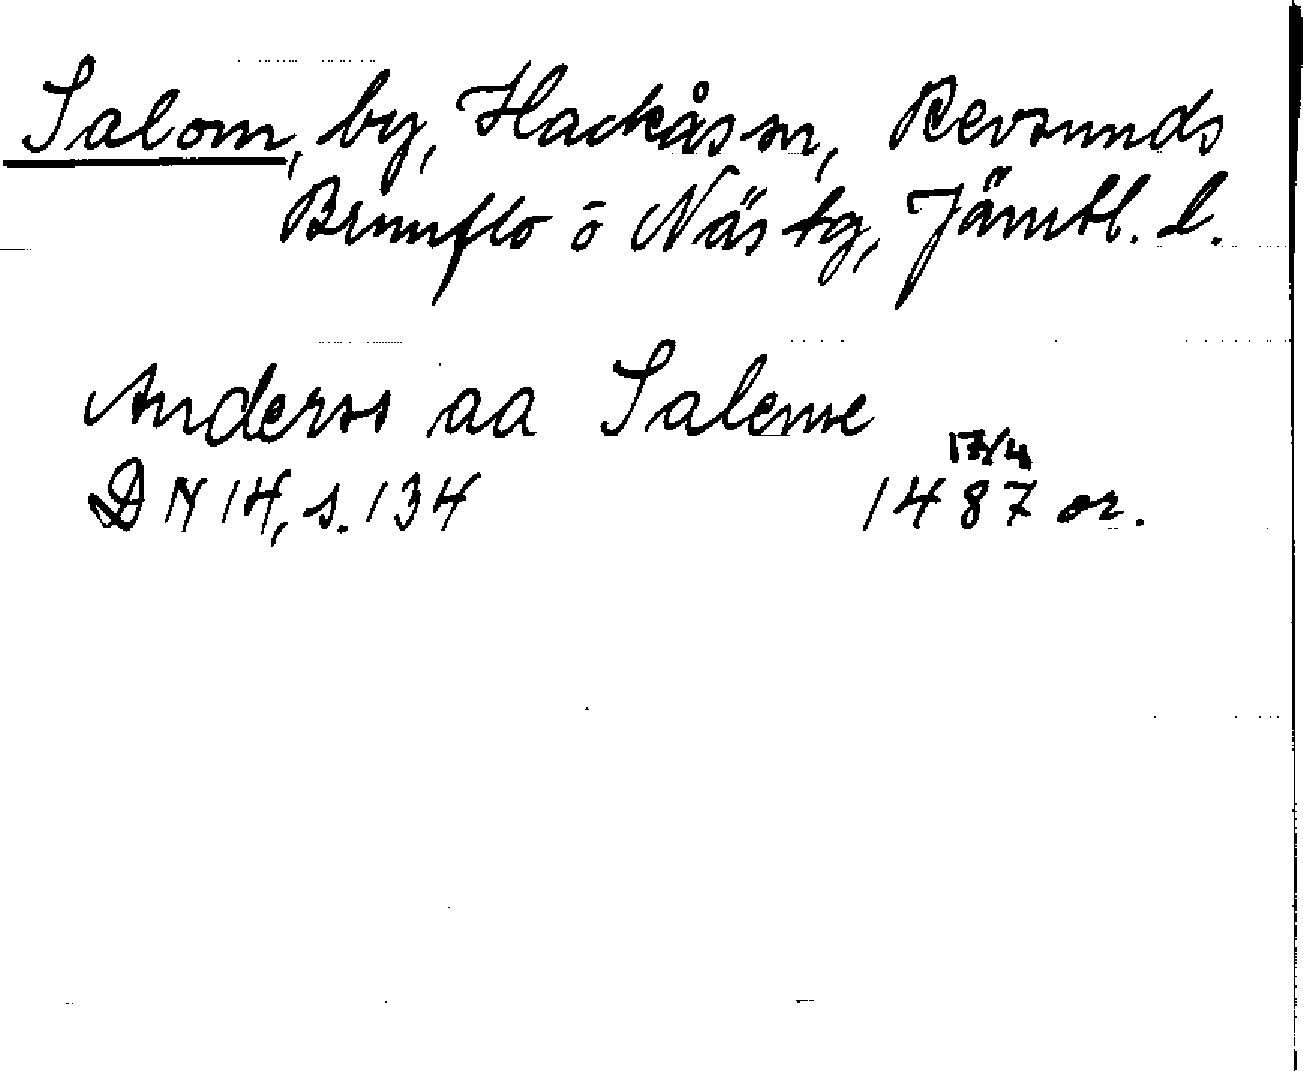 Salom, by, Hackås sn, Revsunds
Brunflo ō Näs tg, Jämtl. l.
Anders aa Saleme
17/4
DN 14, s. 134 1487 or.